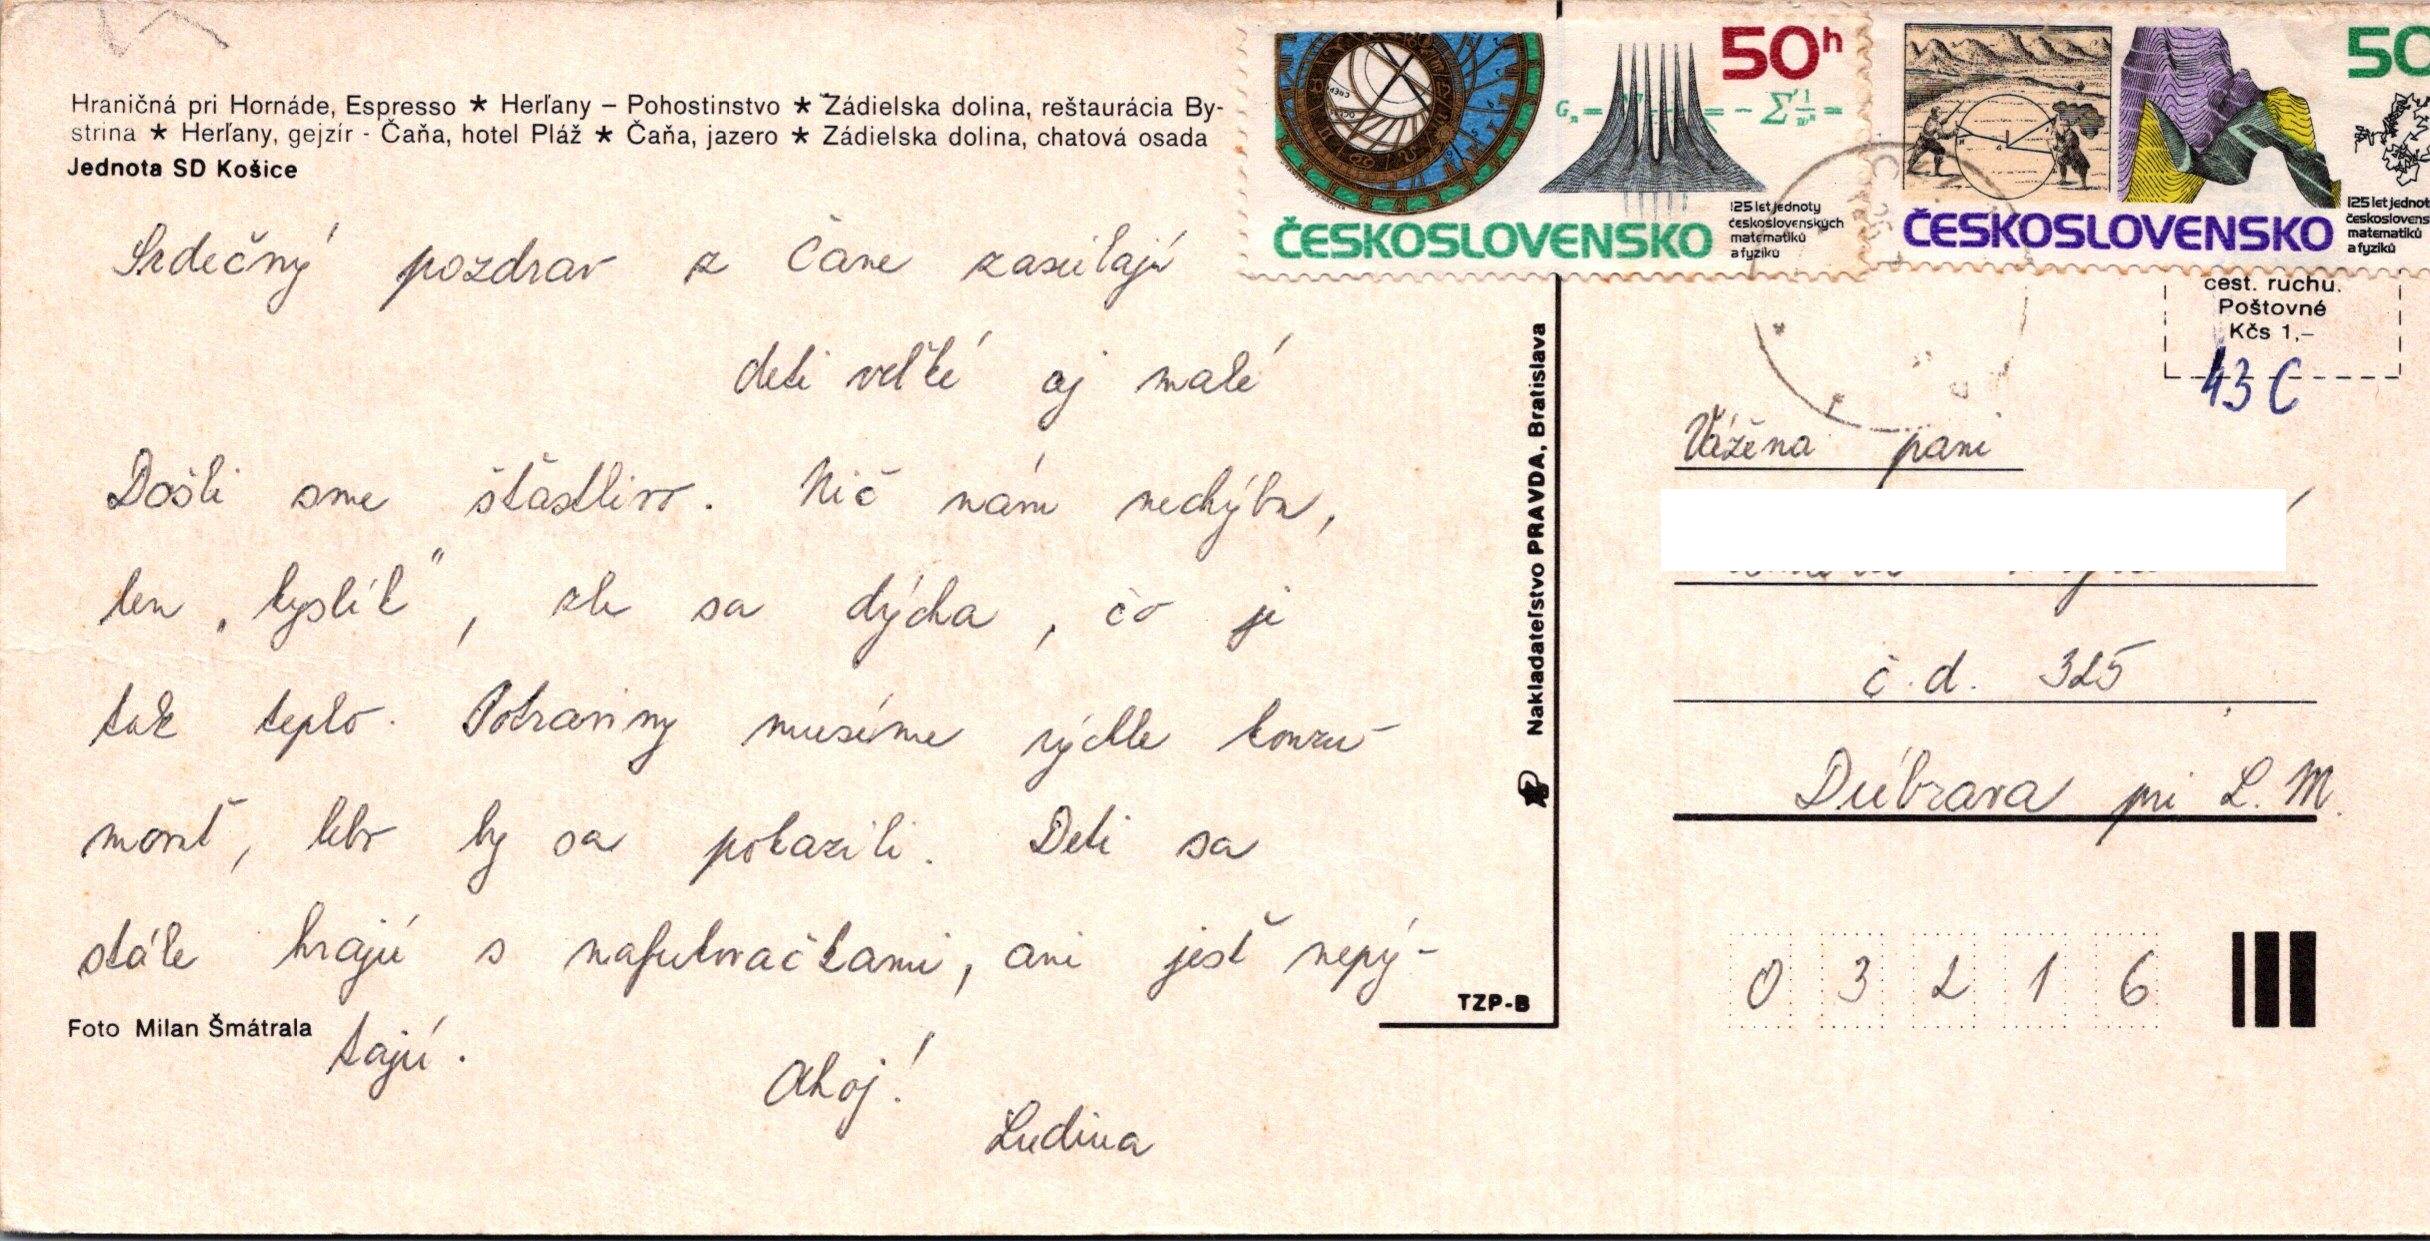 Hraničná pri Hornáde, Espresso ★ Herľany – Pohostinstvo ★ Zádielska dolina, reštaurácia By-
strina ★ Herľany, gejzír - Čaňa, hotel Pláž ★ Čaňa, jazero ★ Zádielska dolina, chatová osada
Jednota SD Košice
Srdečný pozdrav z Čane zasielajú
deti veľké aj malé
Došli sme šťastlivo. Nič nám nechýba,
len „kyslík", zle sa dýcha, čo je
tak teplo. Potraviny musíme rýchle konzu-
movať, lebo by sa pokazili. Deti sa
stále hrajú s nafukovačkami, ani jesť nepý-
tajú.
Ahoj!
Ludina
Foto Milan Šmátrala
Nakladateľstvo PRAVDA, Bratislava
TZP-B
50h
ČESKOSLOVENSKO
125 let jednoty
československých
matematiků
a fyziků
50
ČESKOSLOVENSKO
125 let jednot
českosloven
matematiků
a fyziků
cest. ruchu.
Poštovné
Kčs 1,–
43 C
Vážená pani
č. d. 325
Dúbrava pri L. M.
0 3 2 1 6